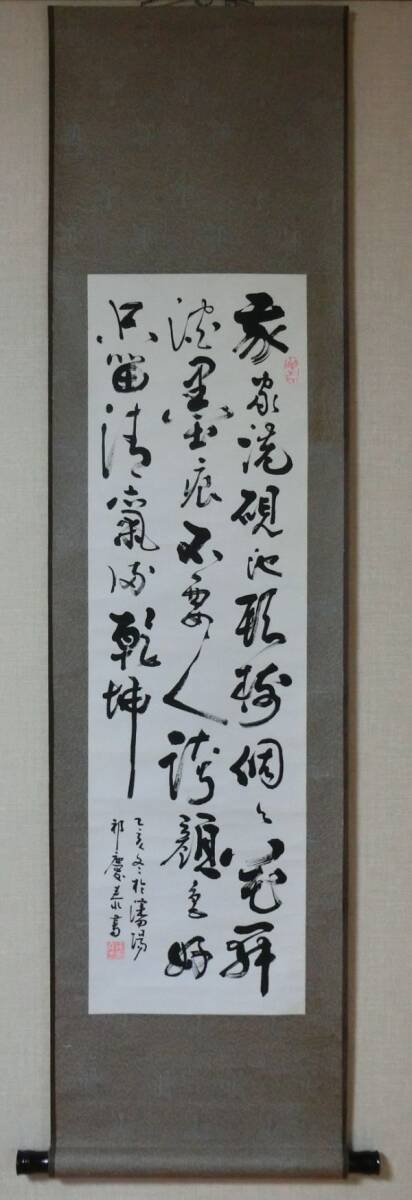 我家洗硯池頭樹個々花開
澹墨痕不要人誇顏色好
只留清氣滿乾坤
乙亥冬於瀋陽
祁慶書